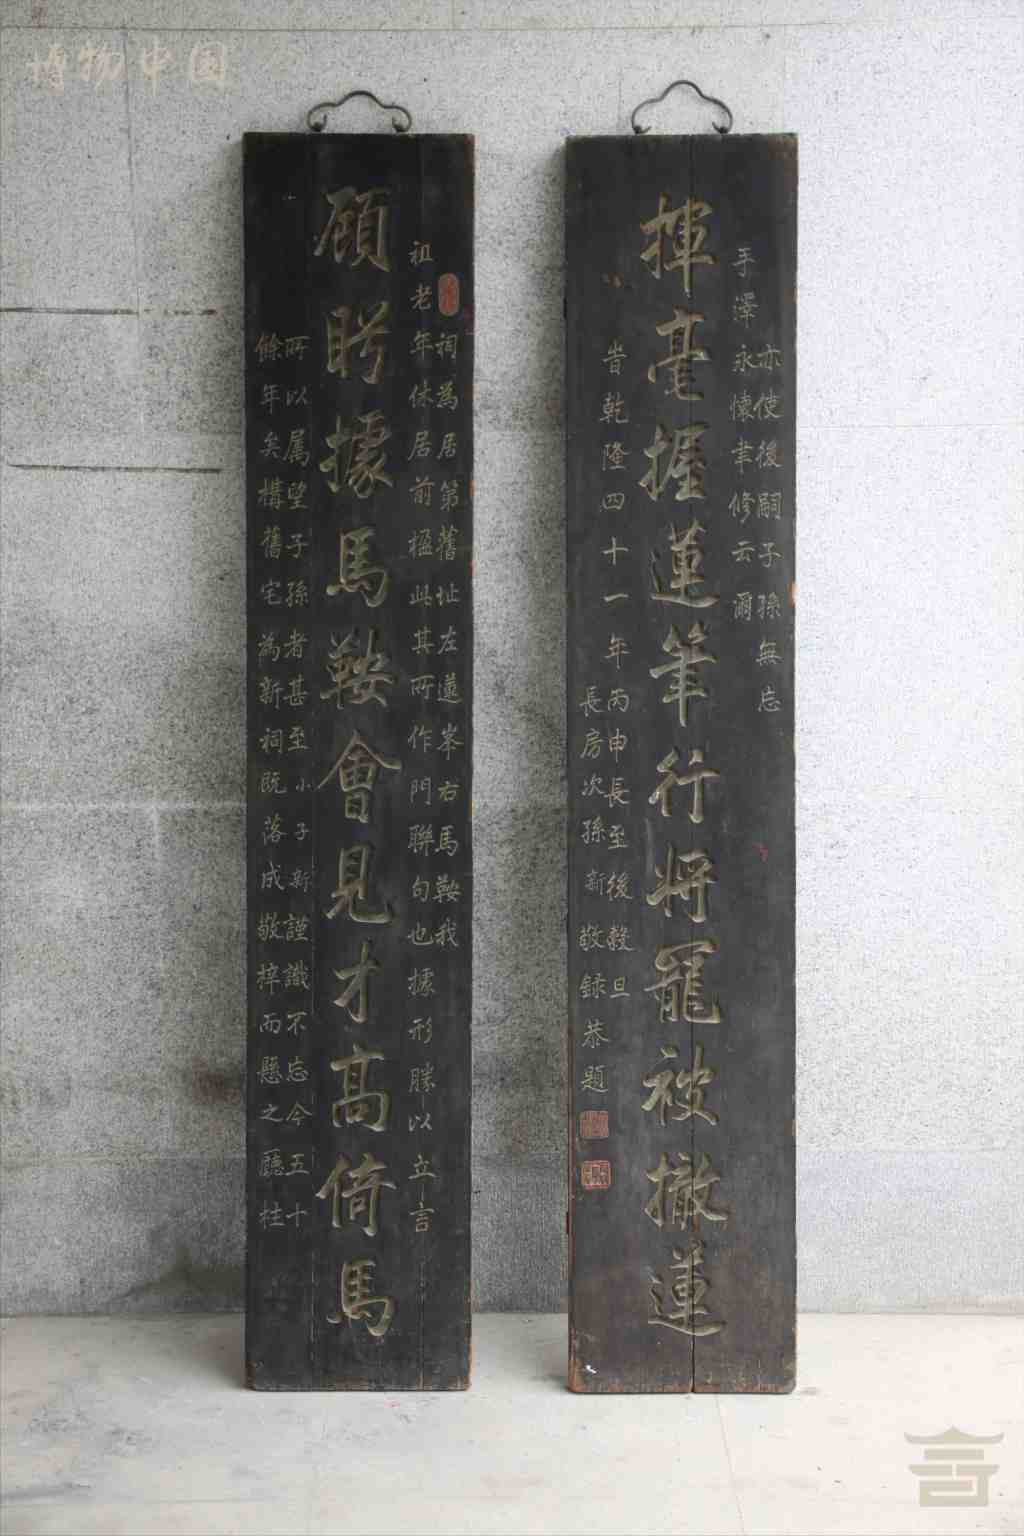 博物中国
祠為居第舊址左蓮峯右馬鞍我
祖老年休居前楹此其所作門聯句也據形勝以立言
顧盻據馬鞍會見才高倚馬
所以属望子孫者甚至小子新謹識不忘今五十
餘年矣構舊宅為新祠既落成敬梓而懸之廳柱
亦使後嗣子孫無忘
手澤永懷聿修云爾
揮毫握蓮筆行將罷被撤蓮
旹乾隆四十一年丙申長至後穀旦
長房次孫新敬録恭題